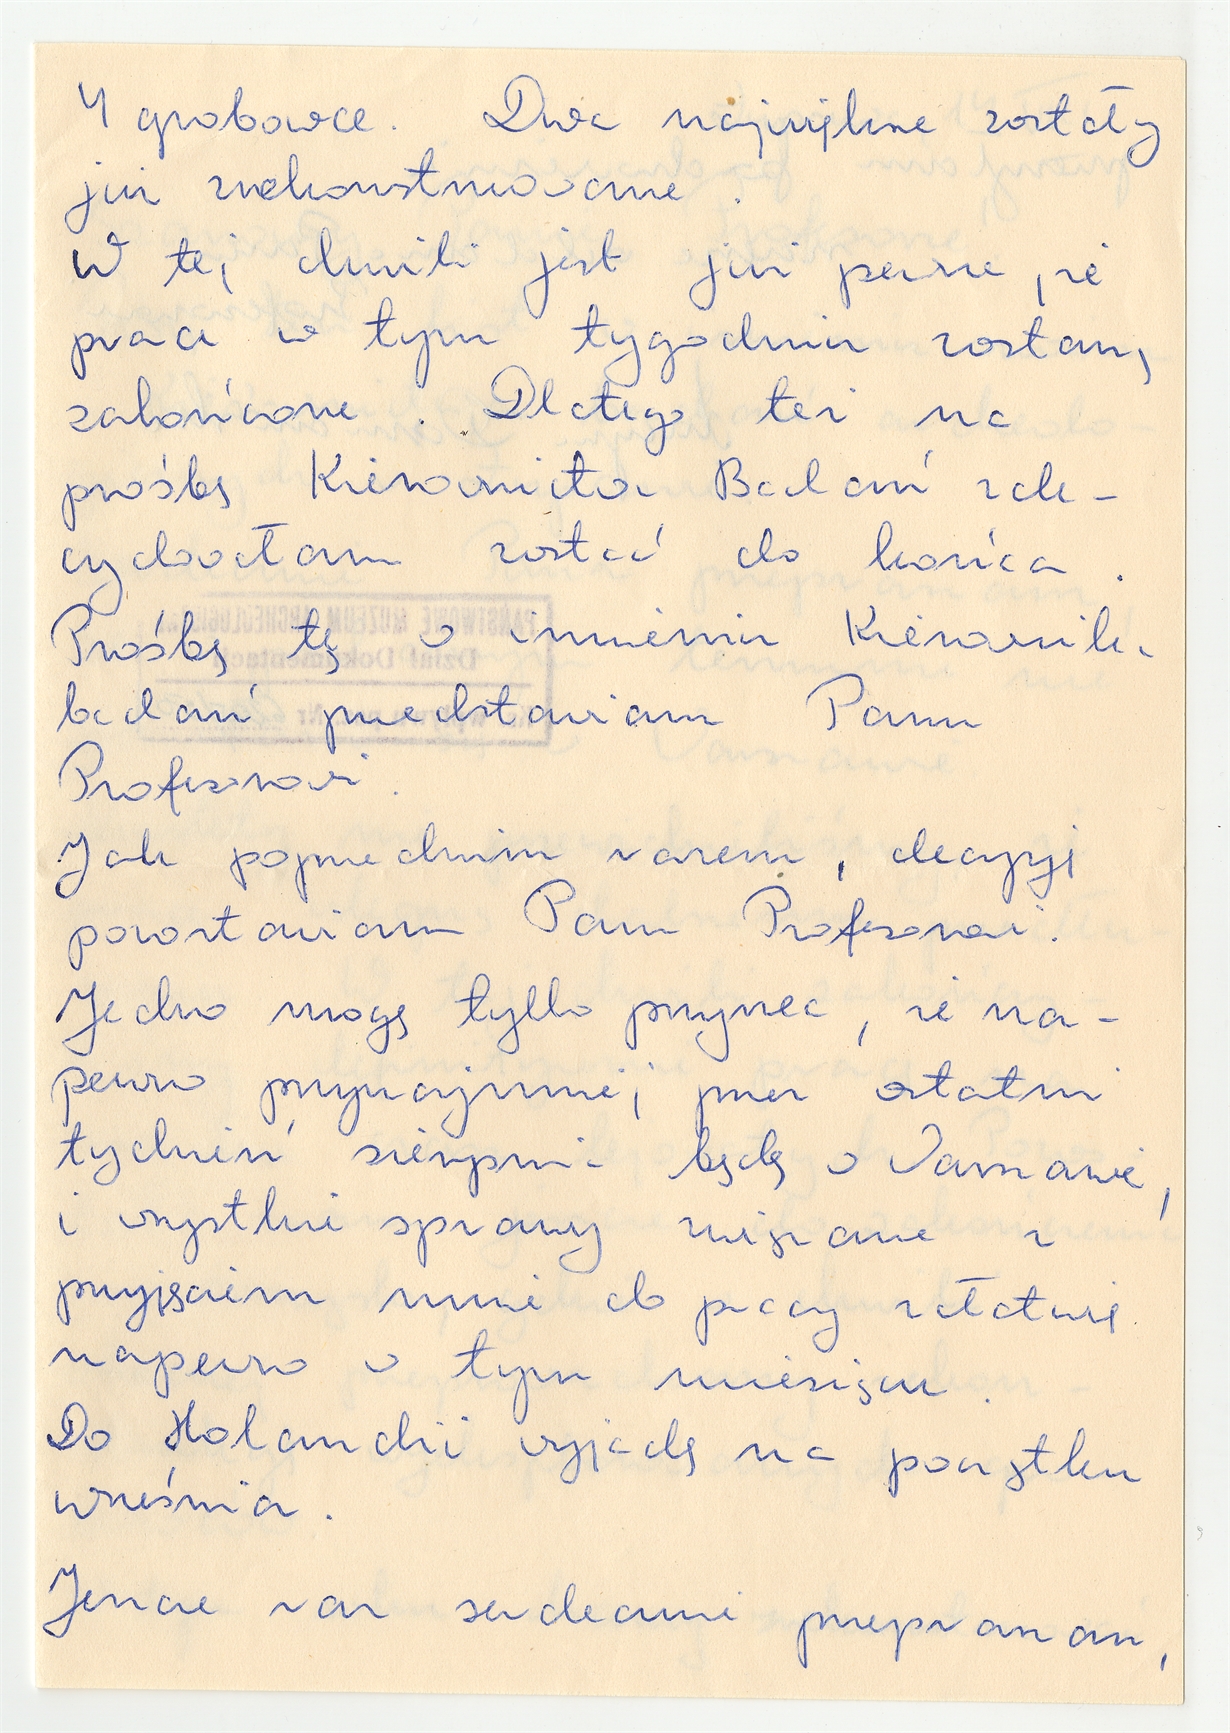 4 grobowce. Dwa największe zostały
już zrekonstruowane.
W tej chwili jest już pewne, że
prace w tym tygodniu zostaną
zakończone. Dlatego też na
prośbę Kierownictwa Badań zde-
cydowałam zostać do końca.
Prośbę tę w imieniu Kierownika
badań przedstawiam Panu
Profesorowi.
Jak poprzednim razem, decyzję
pozostawiam Panu Profesorowi.
Jedno mogę tylko przyrzec, że na-
pewno przynajmniej przez ostatni
tydzień sierpnia będę w Warszawie,
i wszystkie sprawy związane z
przyjęciem mnie do pracy załatwię
napewno w tym miesiącu.
Do Holandii wyjadę na początku
września.
Jeszcze raz serdecznie przepraszam,